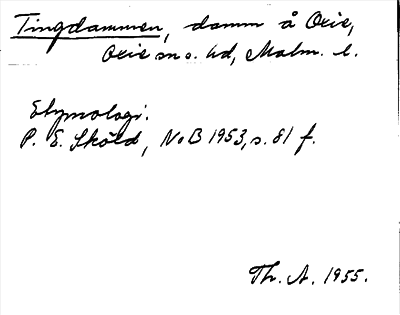 Tingdammen, damm å Oxie,
Oxie sn o. hd, Malm. l.
Etymologi:
P. E. Sköld, NoB 1953, s. 81 f.
Th. A. 1955.